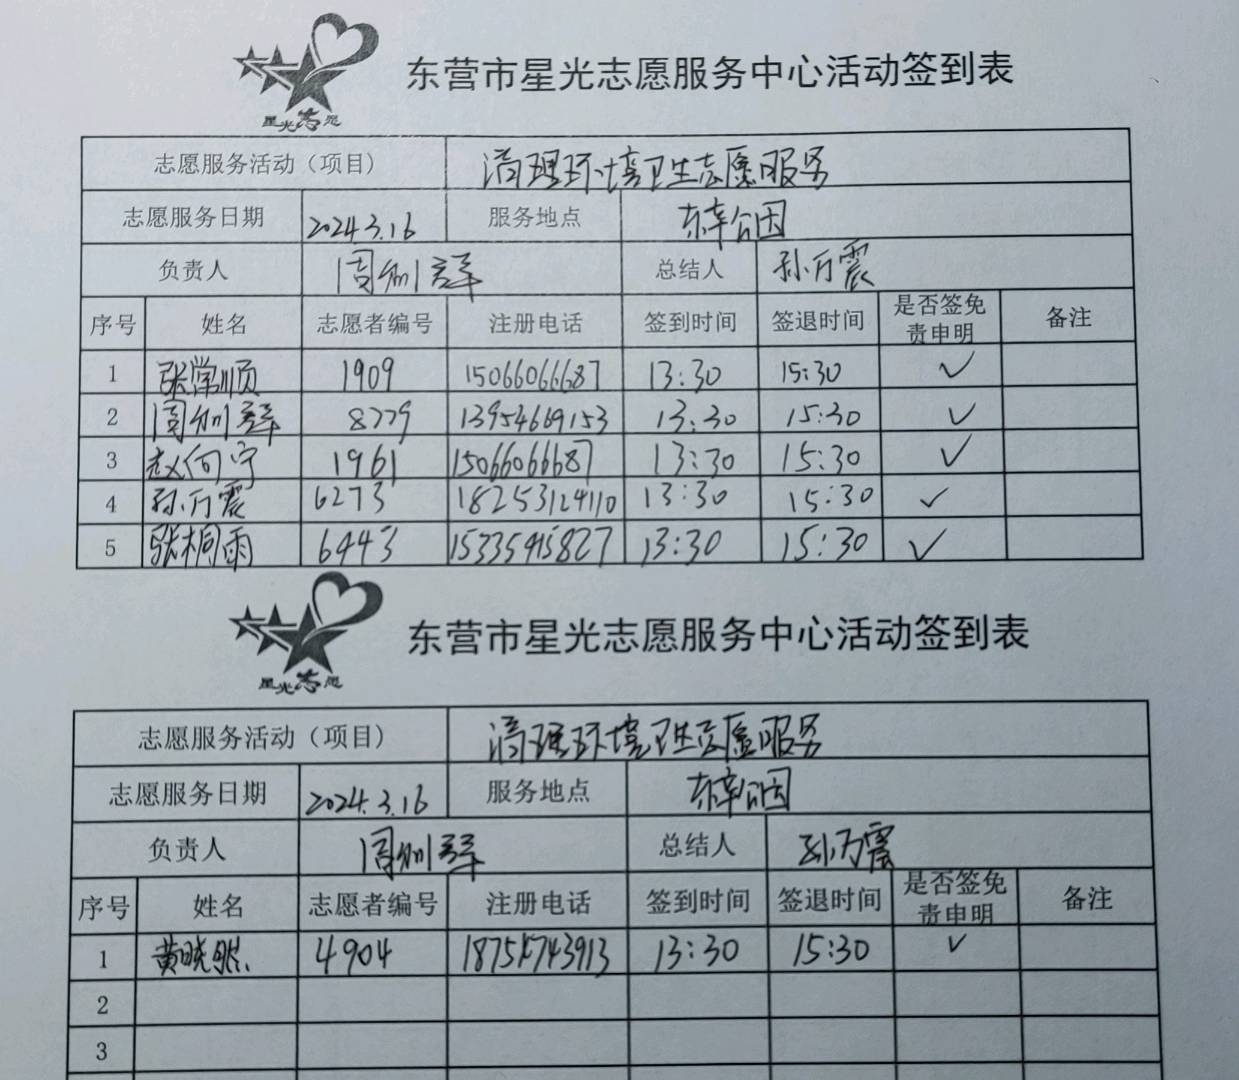 星光志愿
东营市星光志愿服务中心活动签到表
志愿服务活动（项目） 清理环境卫生志愿服务
志愿服务日期 2024.3.16 服务地点 东辛公园
负责人 周 总结人 孙万震
序号 姓名 志愿者编号 注册电话 签到时间 签退时间 是否签免责申明 备注
1 张学顺 1909 15066066687 13:30 15:30 ✓
2 周 8779 13954669153 13:30 15:30 ✓
3 赵向宁 1961 15066066687 13:30 15:30 ✓
4 孙万震 6273 18253124110 13:30 15:30 ✓
5 张桐雨 6443 13:30 15:30 ✓
星光志愿
东营市星光志愿服务中心活动签到表
志愿服务活动（项目） 清理环境卫生志愿服务
志愿服务日期 2024.3.16 服务地点 东辛公园
负责人 周 总结人 孙万震
序号 姓名 志愿者编号 注册电话 签到时间 签退时间 是否签免责申明 备注
1 黄晓 4904 13:30 15:30 ✓
2
3